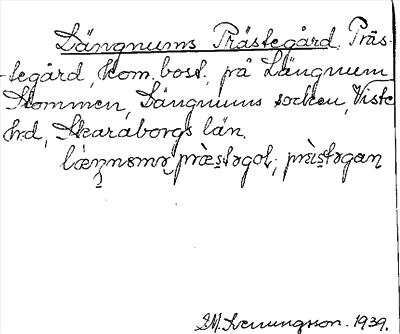 Längnums Prästegård, Präs-
tegård, kom. bost. på Längnum
Stommen, Längnums socken, Viste
hd, Skaraborgs län.
præ̀stəgoḷ,
Svenungsson. 1939.